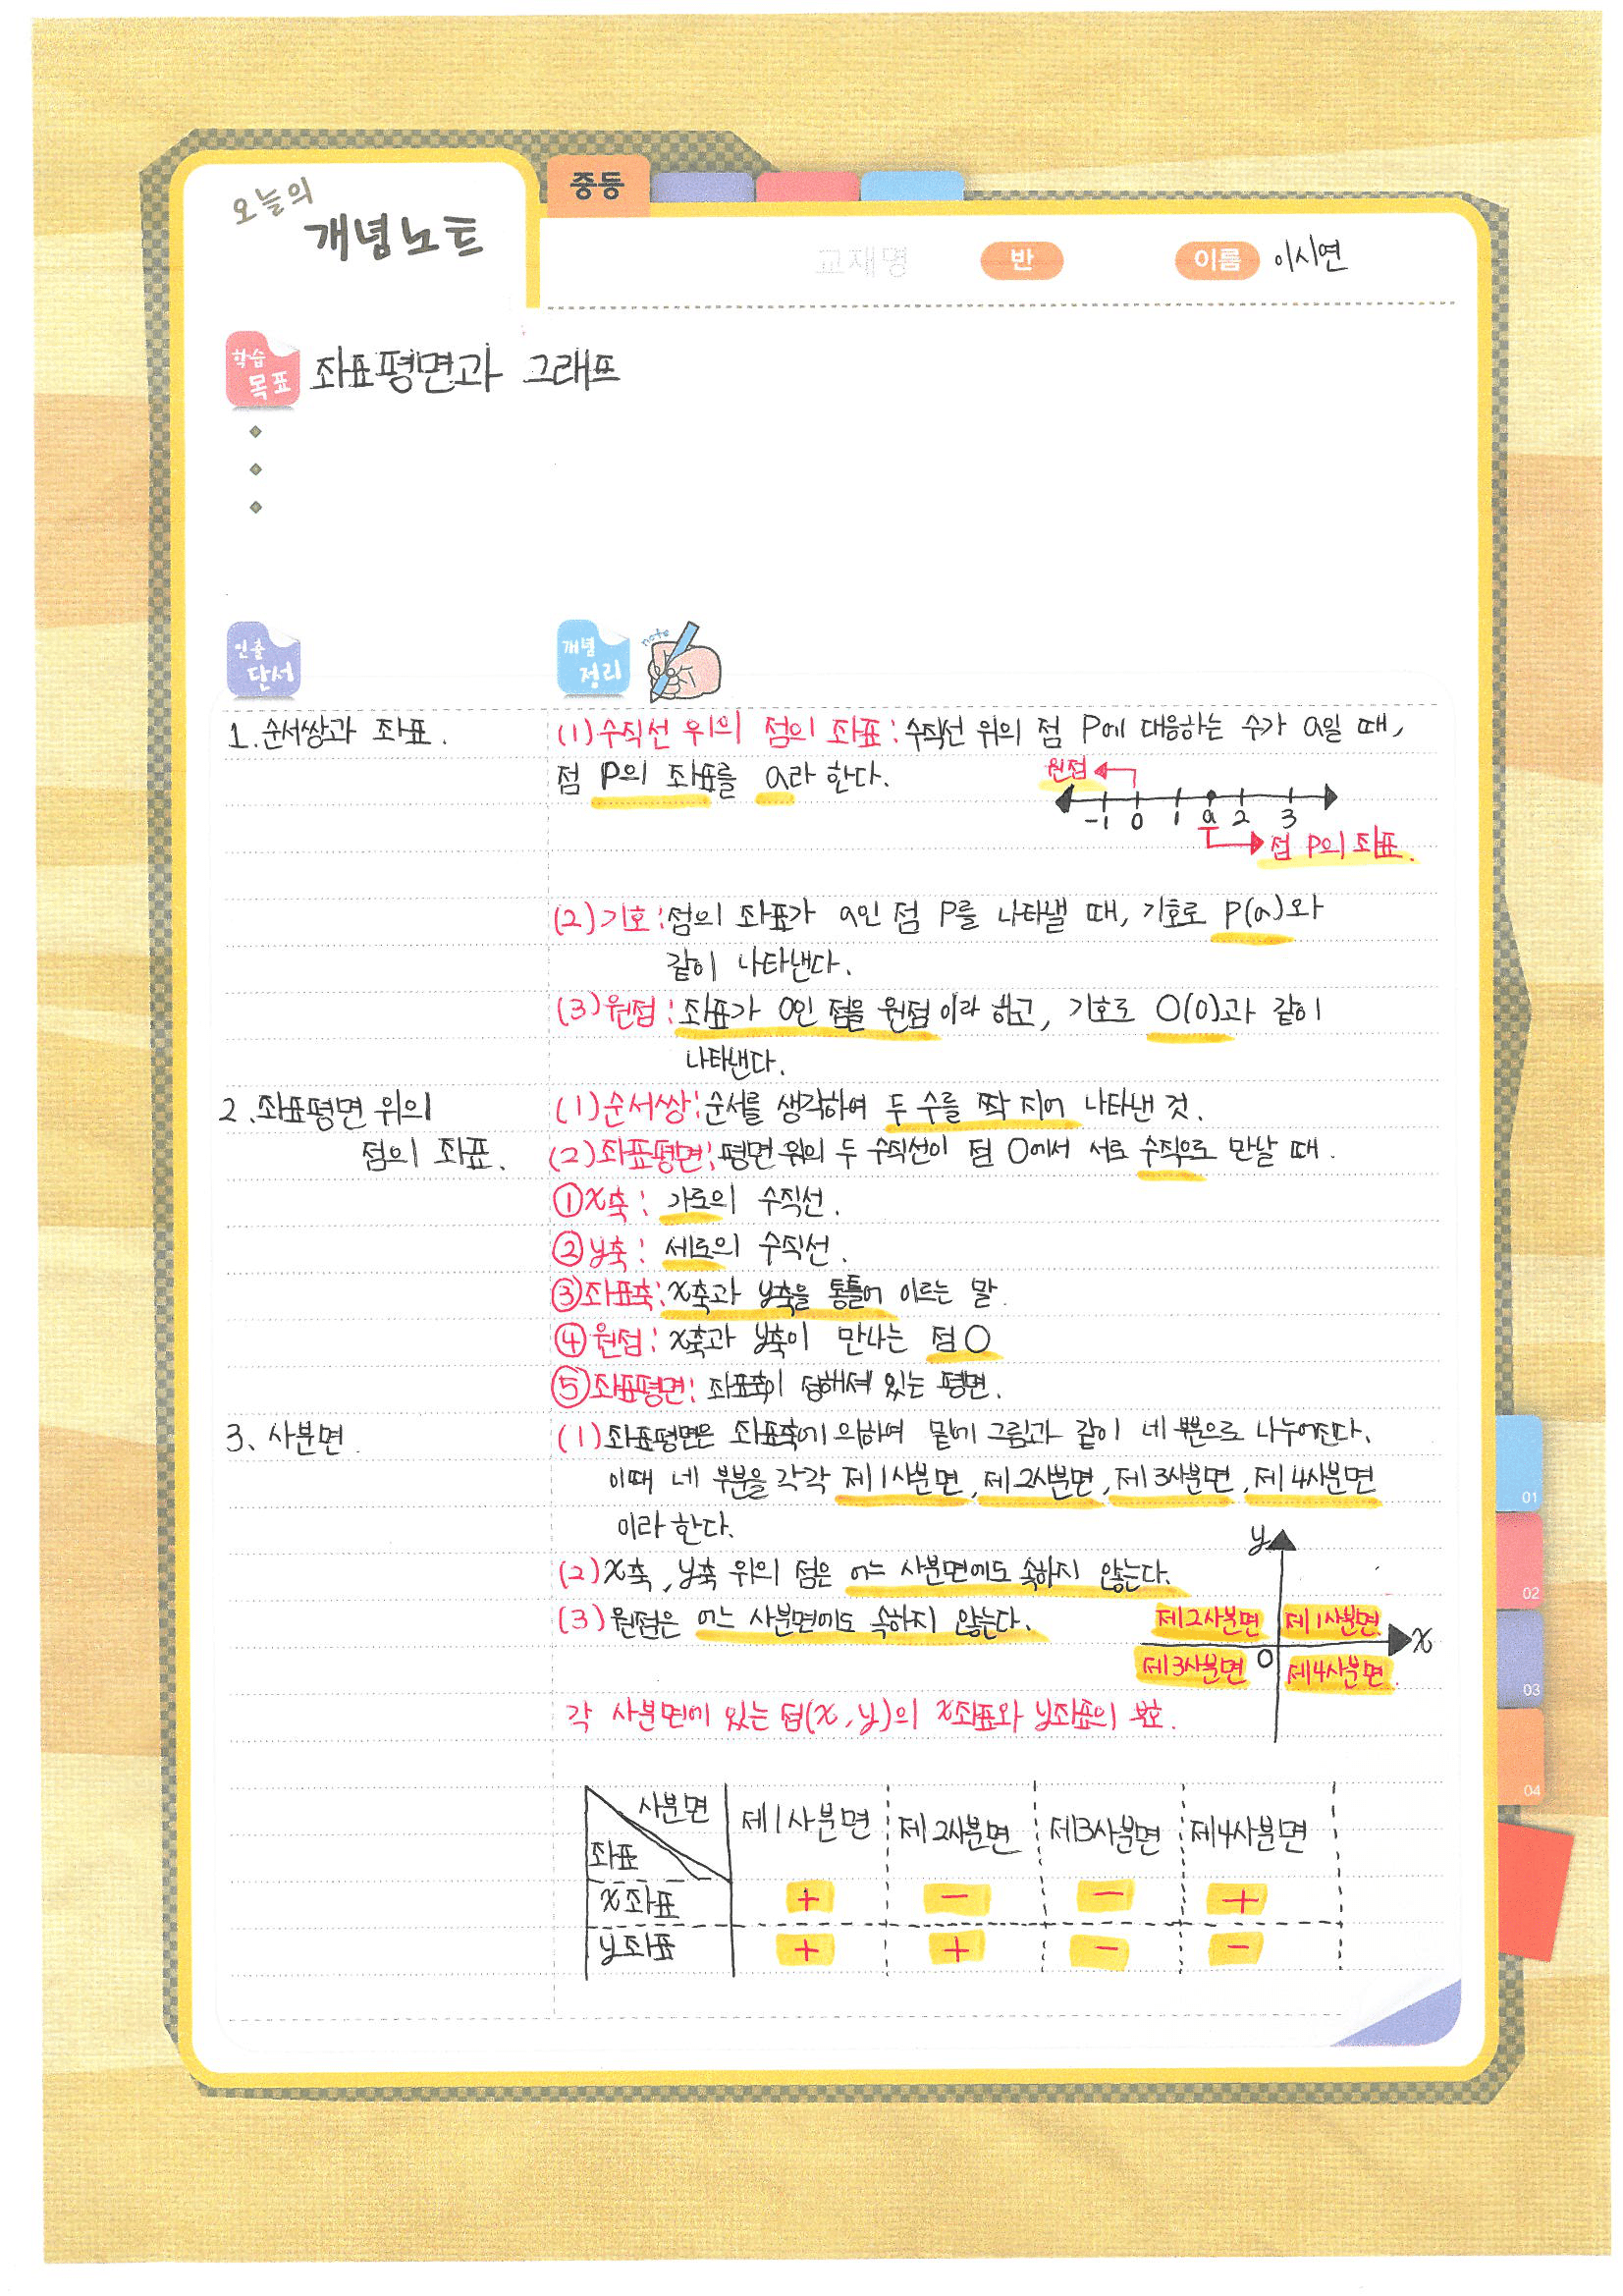 오늘의
개념노트
중등
교재명 반 이름 이시연
학습
목표 좌표평면과 그래프
인출
단서
개념
정리
note
1. 순서쌍과 좌표.
(1) 수직선 위의 점의 좌표: 수직선 위의 점 P에 대응하는 수가 a일 때,
점 P의 좌표를 a라 한다.
원점
-1 0 1 a 2 3
점 P의 좌표.
(2) 기호: 점의 좌표가 a인 점 P를 나타낼 때, 기호로 P(a)와
같이 나타낸다.
(3) 원점: 좌표가 0인 점을 원점이라 하고, 기호로 O(0)과 같이
나타낸다.
2. 좌표평면 위의
점의 좌표.
(1) 순서쌍: 순서를 생각하여 두 수를 짝 지어 나타낸 것.
(2) 좌표평면: 평면 위의 두 수직선이 점 O에서 서로 수직으로 만날 때.
① x축: 가로의 수직선.
② y축: 세로의 수직선.
③ 좌표축: x축과 y축을 통틀어 이르는 말.
④ 원점: x축과 y축이 만나는 점 O
⑤ 좌표평면: 좌표축이 정해져 있는 평면.
3. 사분면.
(1) 좌표평면은 좌표축에 의하여 밑에 그림과 같이 네 부분으로 나누어진다.
이때 네 부분을 각각 제1사분면, 제2사분면, 제3사분면, 제4사분면
이라 한다.
(2) x축, y축 위의 점은 어느 사분면에도 속하지 않는다.
(3) 원점은 어느 사분면에도 속하지 않는다.
y
제2사분면 제1사분면
x
제3사분면 O 제4사분면
각 사분면에 있는 점(x, y)의 x좌표와 y좌표의 부호.
사분면 제1사분면 제2사분면 제3사분면 제4사분면
좌표
x좌표 + - - +
y좌표 + + - -
01
02
03
04